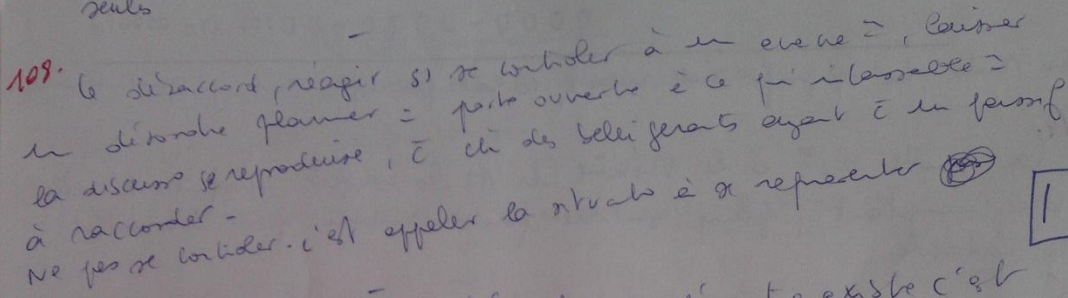 seuls
109. le désaccord, réagir si se controler à un evene =, laisser
un désordre planner = porte ouverte è ce qui inlassable =
la discuss se reproduise, c̄ ch des belligerants ayant c̄ un passif
à raccorder -
Ne pas se controler. c'est appeler la situato è se representer
1
existe c'est